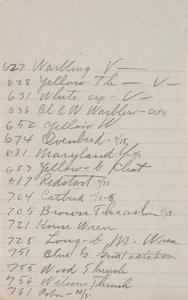 627 Warbling V—
628 Yellow Th— V—
631 White ey— V—
636 Bl & W Warbler — Oct 4
652 Yellow W
674 Ovenbird —
681 Maryland Y—
683 Yellow — b Chat
687 Redstart
704 Catbird
705 Brown Thrasher
721 House Wren
725 Long-b M. Wren
751 Blue G Gnatcatcher
755 Wood Thrush
756 Wilsons Thrush
761 Robin —